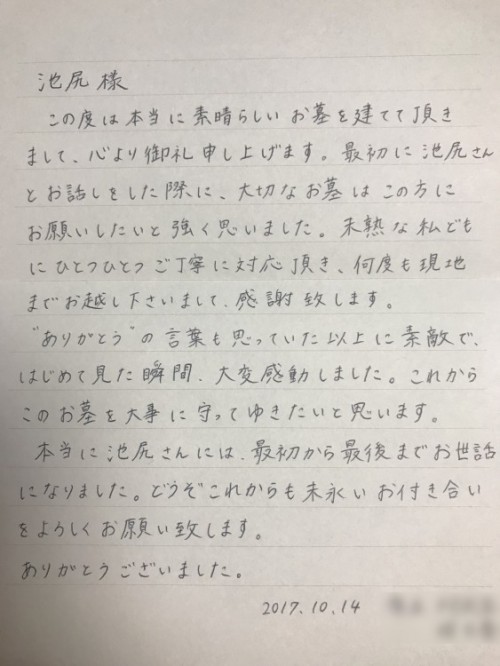 池尻様
この度は本当に素晴らしいお墓を建てて頂き
まして、心より御礼申し上げます。最初に池尻さん
とお話しをした際に、大切なお墓はこの方に
お願いしたいと強く思いました。未熟な私ども
にひとつひとつご丁寧に対応頂き、何度も現地
までお越し下さいまして、感謝致します。
"ありがとう"の言葉も思っていた以上に素敵で、
はじめて見た瞬間、大変感動しました。これから
このお墓を大事に守ってゆきたいと思います。
本当に池尻さんには、最初から最後までお世話
になりました。どうぞこれからも末永いお付き合い
をよろしくお願い致します。
ありがとうございました。
2017.10.14